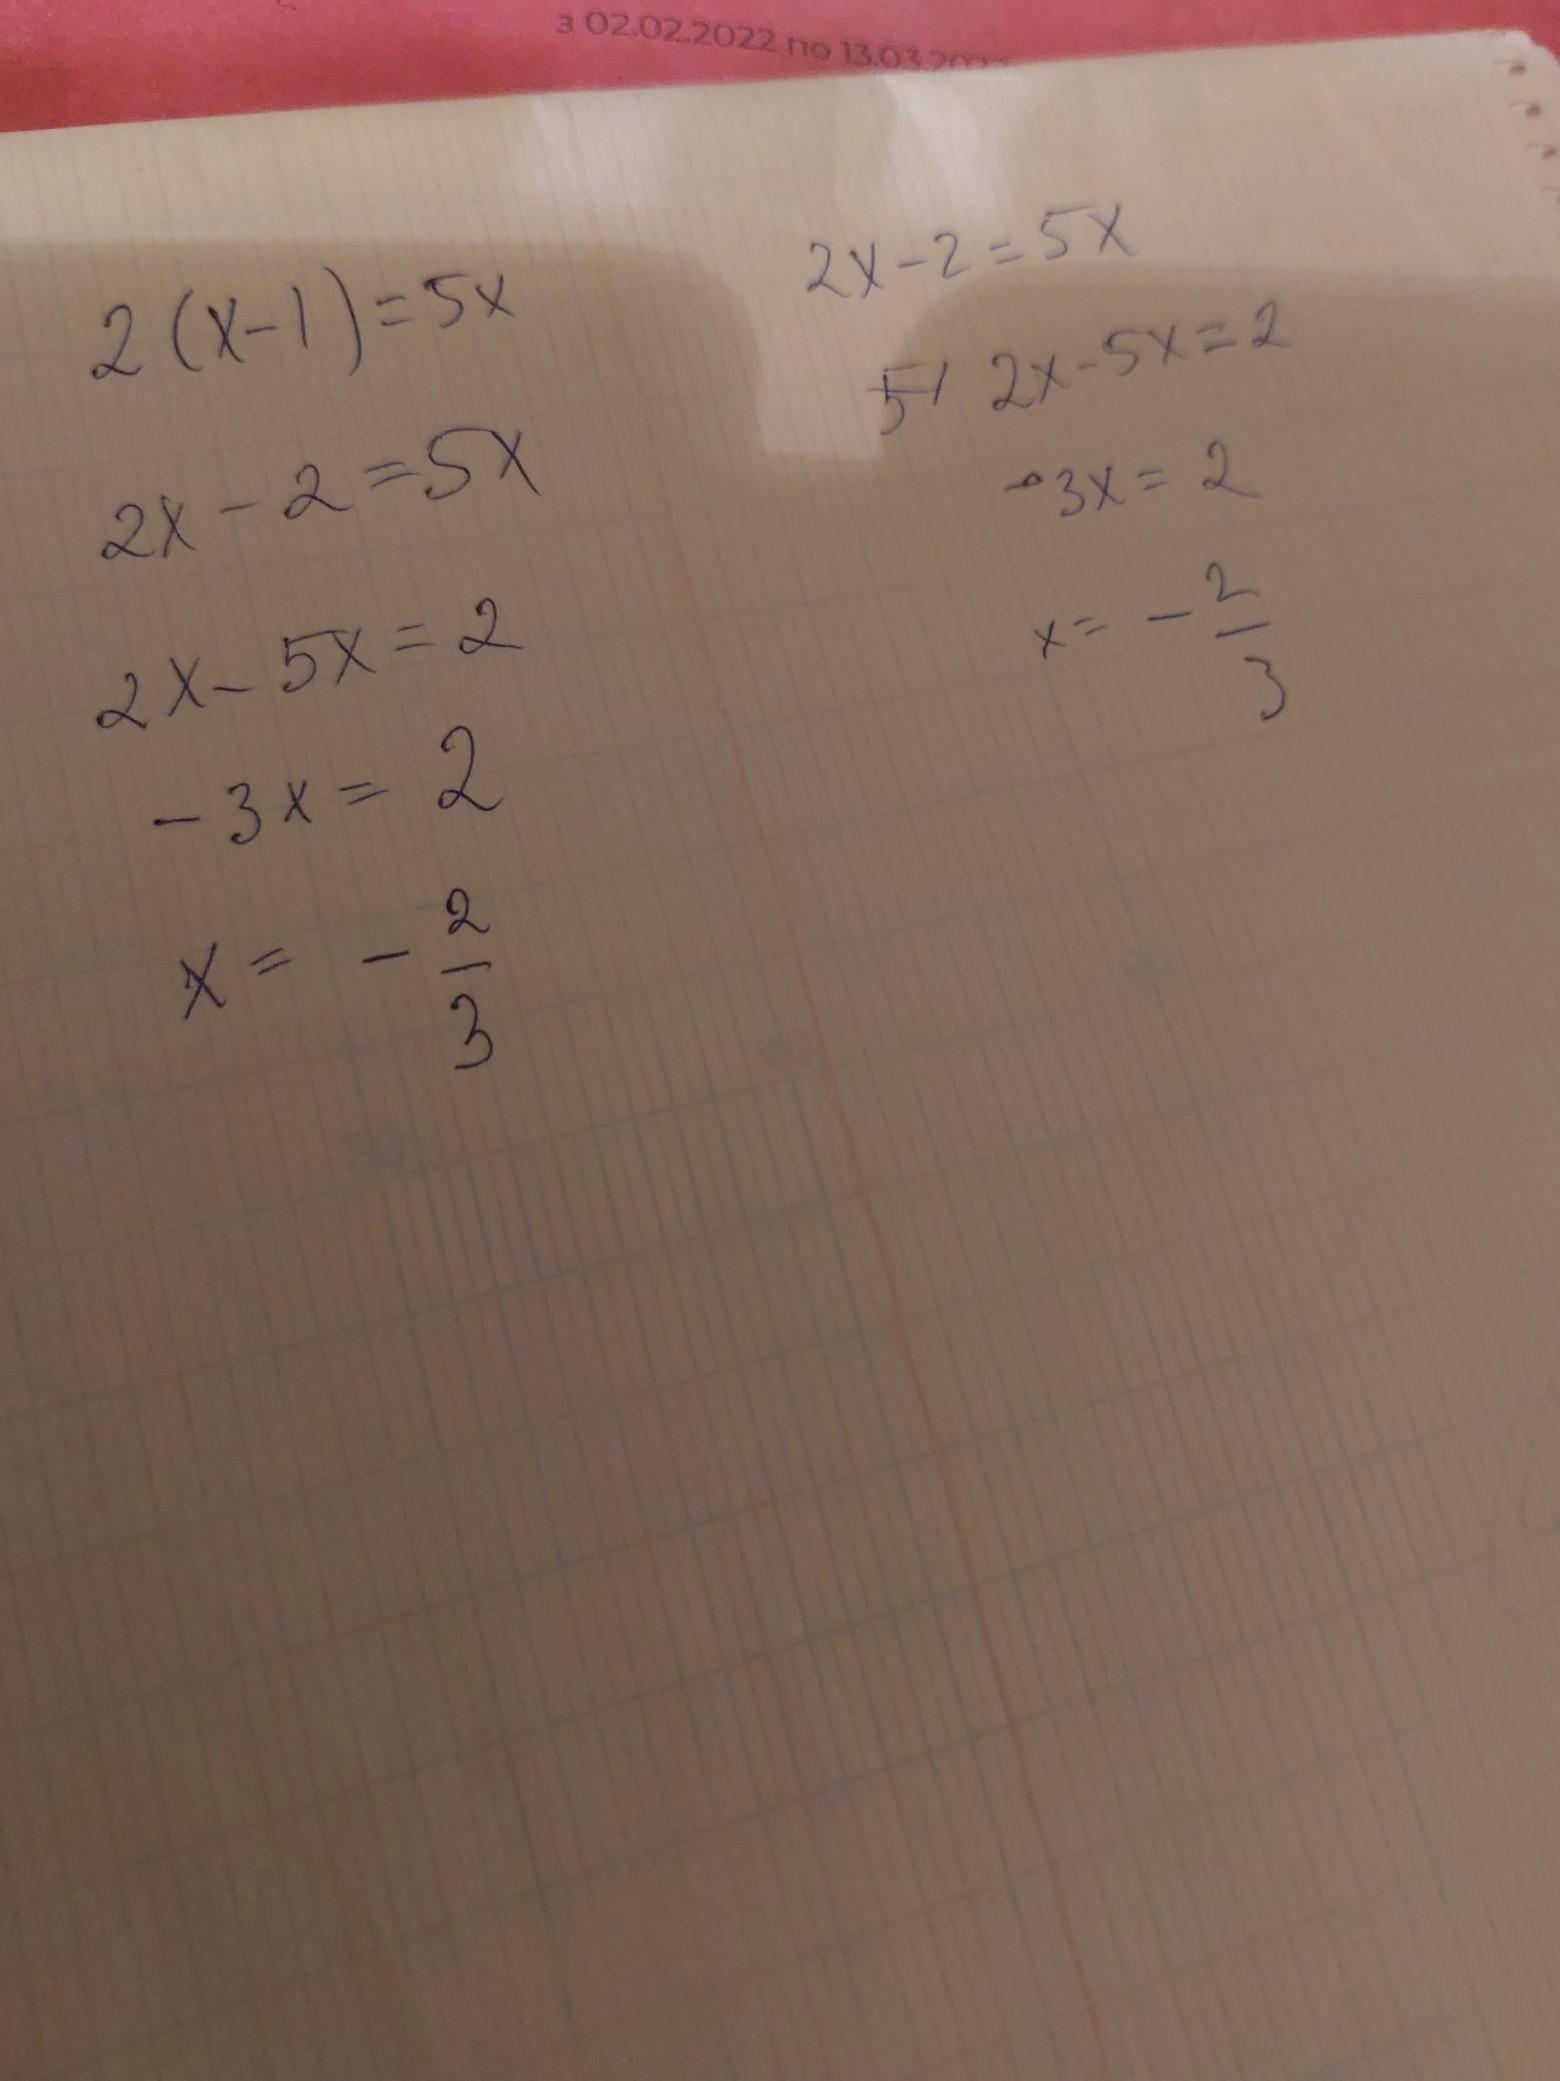 з 02.02.2022 по 13.03.2022
2(x-1)=5x
2x-2=5x
2x-5x=2
-3x=2
x= -2/3
2x-2=5x
2x-5x=2
-3x=2
x= -2/3